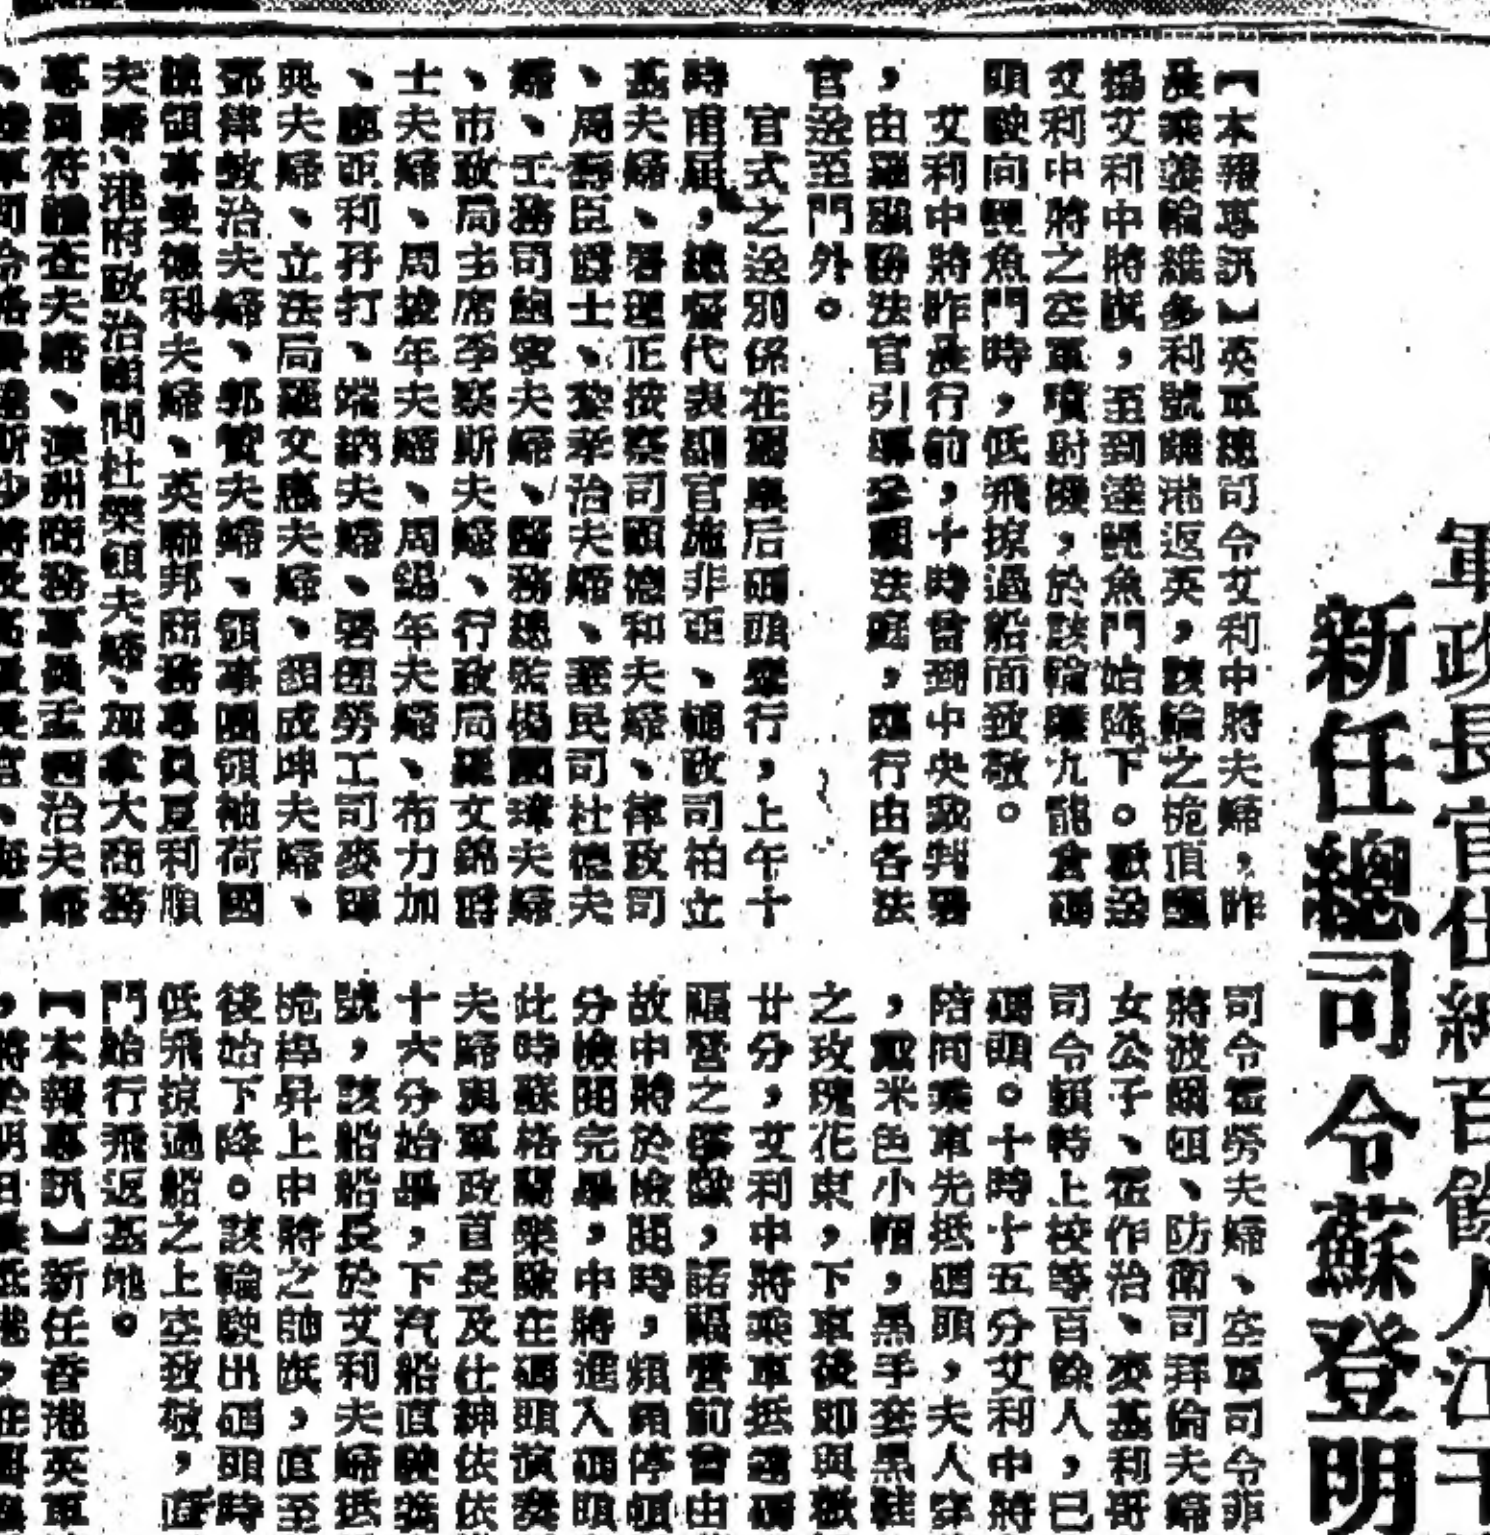 軍政長官仕紳百餘人江干
新任總司令蘇登明
【本報專訊】英軍總司令艾利中將夫婦，昨
晨乘姜輪維多利號離港返英，該輪之桅頂
揚艾利中將旗，至到達鯉魚門始降下。歡送
艾利中將之空軍噴射機，於該輪離九龍倉碼
頭駛向鯉魚門時，低飛掠過船面致敬。
艾利中將昨晨行前，十時曾到中央裁判署
，由羅顯勝法官引導參觀法庭，臨行由各法
官送至門外。
官式之送別係在皇后碼頭舉行，上午十
時甫屆，總督代表副官施非亞、輔政司柏立
基夫婦、署理正按察司 德和夫婦、律政司
婦、工務司鮑寧夫婦、醫務總監楊國璋夫婦
、周壽臣爵士、黎孝治夫婦、華民司杜德夫
、市政局主席李察斯夫婦、行政局羅文錦爵
士夫婦、周埈年夫婦、周錫年夫婦、布力加
、 亞利孖打、端納夫婦、署理勞工司麥
與夫婦、立法局羅文惠夫婦、顏成坤夫婦、
鄧律敦治夫婦、郭贊夫婦、領事團領袖荷國
總領事曼德利夫婦、英聯邦商務專員夏利順
夫婦、港府政治顧問杜樂頓夫婦、加拿大商務
專員符 在夫婦、澳洲商務專員孟 治夫婦
司令霍勞夫婦、空軍司令菲
將波爾頓、防衛司拜倫夫婦
女公子、霍作治、麥基利哥
司令賴特上校等百餘人，已
碼頭。十時十五分艾利中將
陪同乘車先抵碼頭，夫人穿
，戴米色小帽，黑手套黑鞋
之玫瑰花束，下車後即與歡
廿分，艾利中將乘車抵達碼
福營之樂隊，諾福營前曾由
故中將於檢閱時，頻頻停頓
分檢閱完畢，中將進入碼頭
此時蘇格蘭樂隊在碼頭演奏
夫婦與軍政首長及仕紳依依
十六分始畢，下汽船直駛姜
號，該船船長於艾利夫婦抵
桅桿昇上中將之帥旗，直至
後始下降。該輪駛出碼頭時
低飛掠過船之上空致敬，直
門始行飛返基地。
【本報專訊】新任香港英軍
，將於明日 抵港，